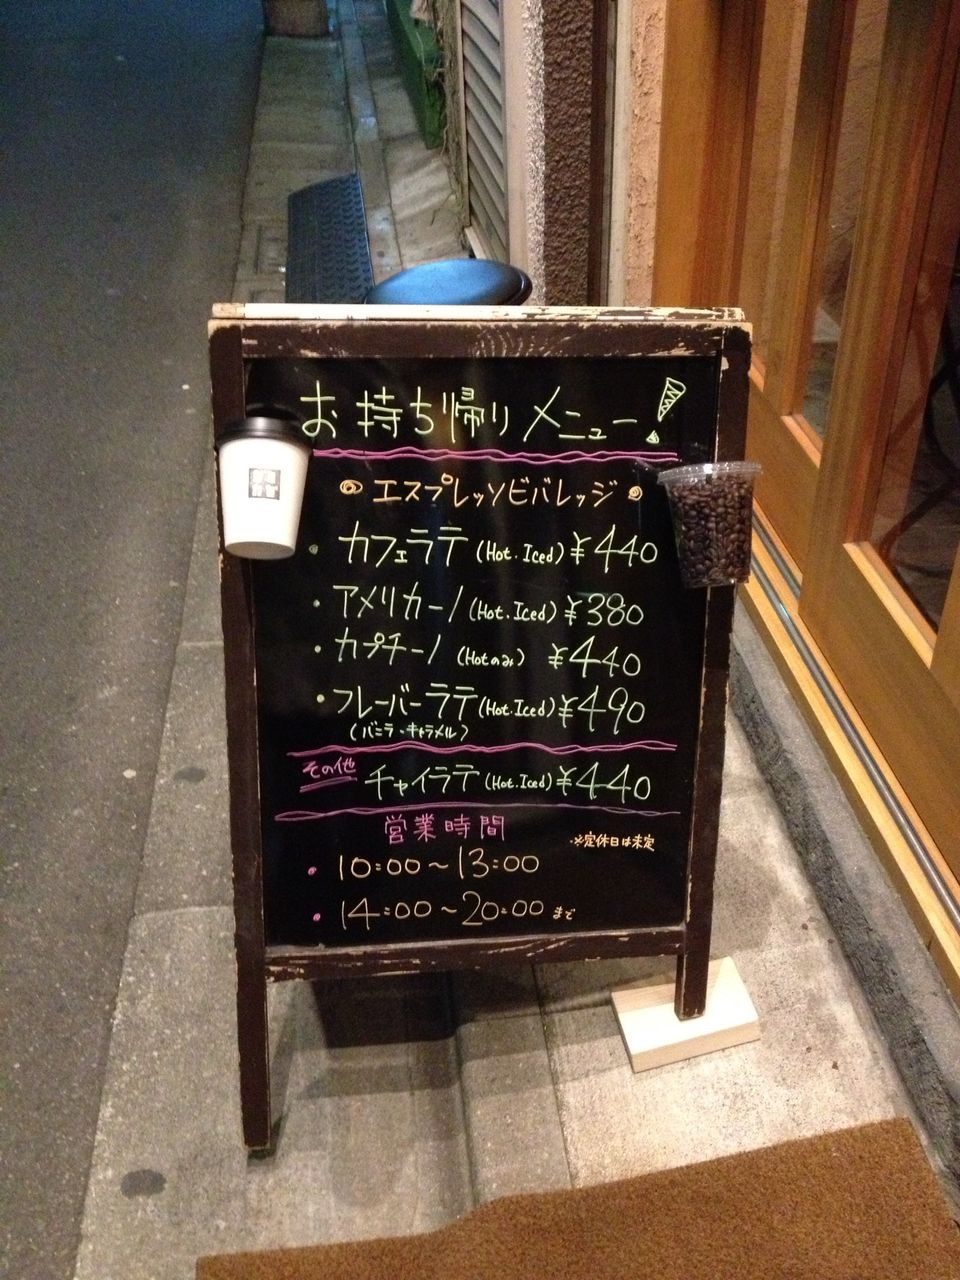 お持ち帰りメニュー!
エスプレッソビバレッジ
・カフェラテ (Hot.Iced) ¥440
・アメリカーノ (Hot.Iced) ¥380
・カプチーノ (Hotのみ) ¥440
・フレーバーラテ (Hot.Iced) ¥490
(バニラ・キャラメル)
その他 チャイラテ (Hot.Iced) ¥440
営業時間
※定休日は未定
・10:00~13:00
・14:00~20:00まで